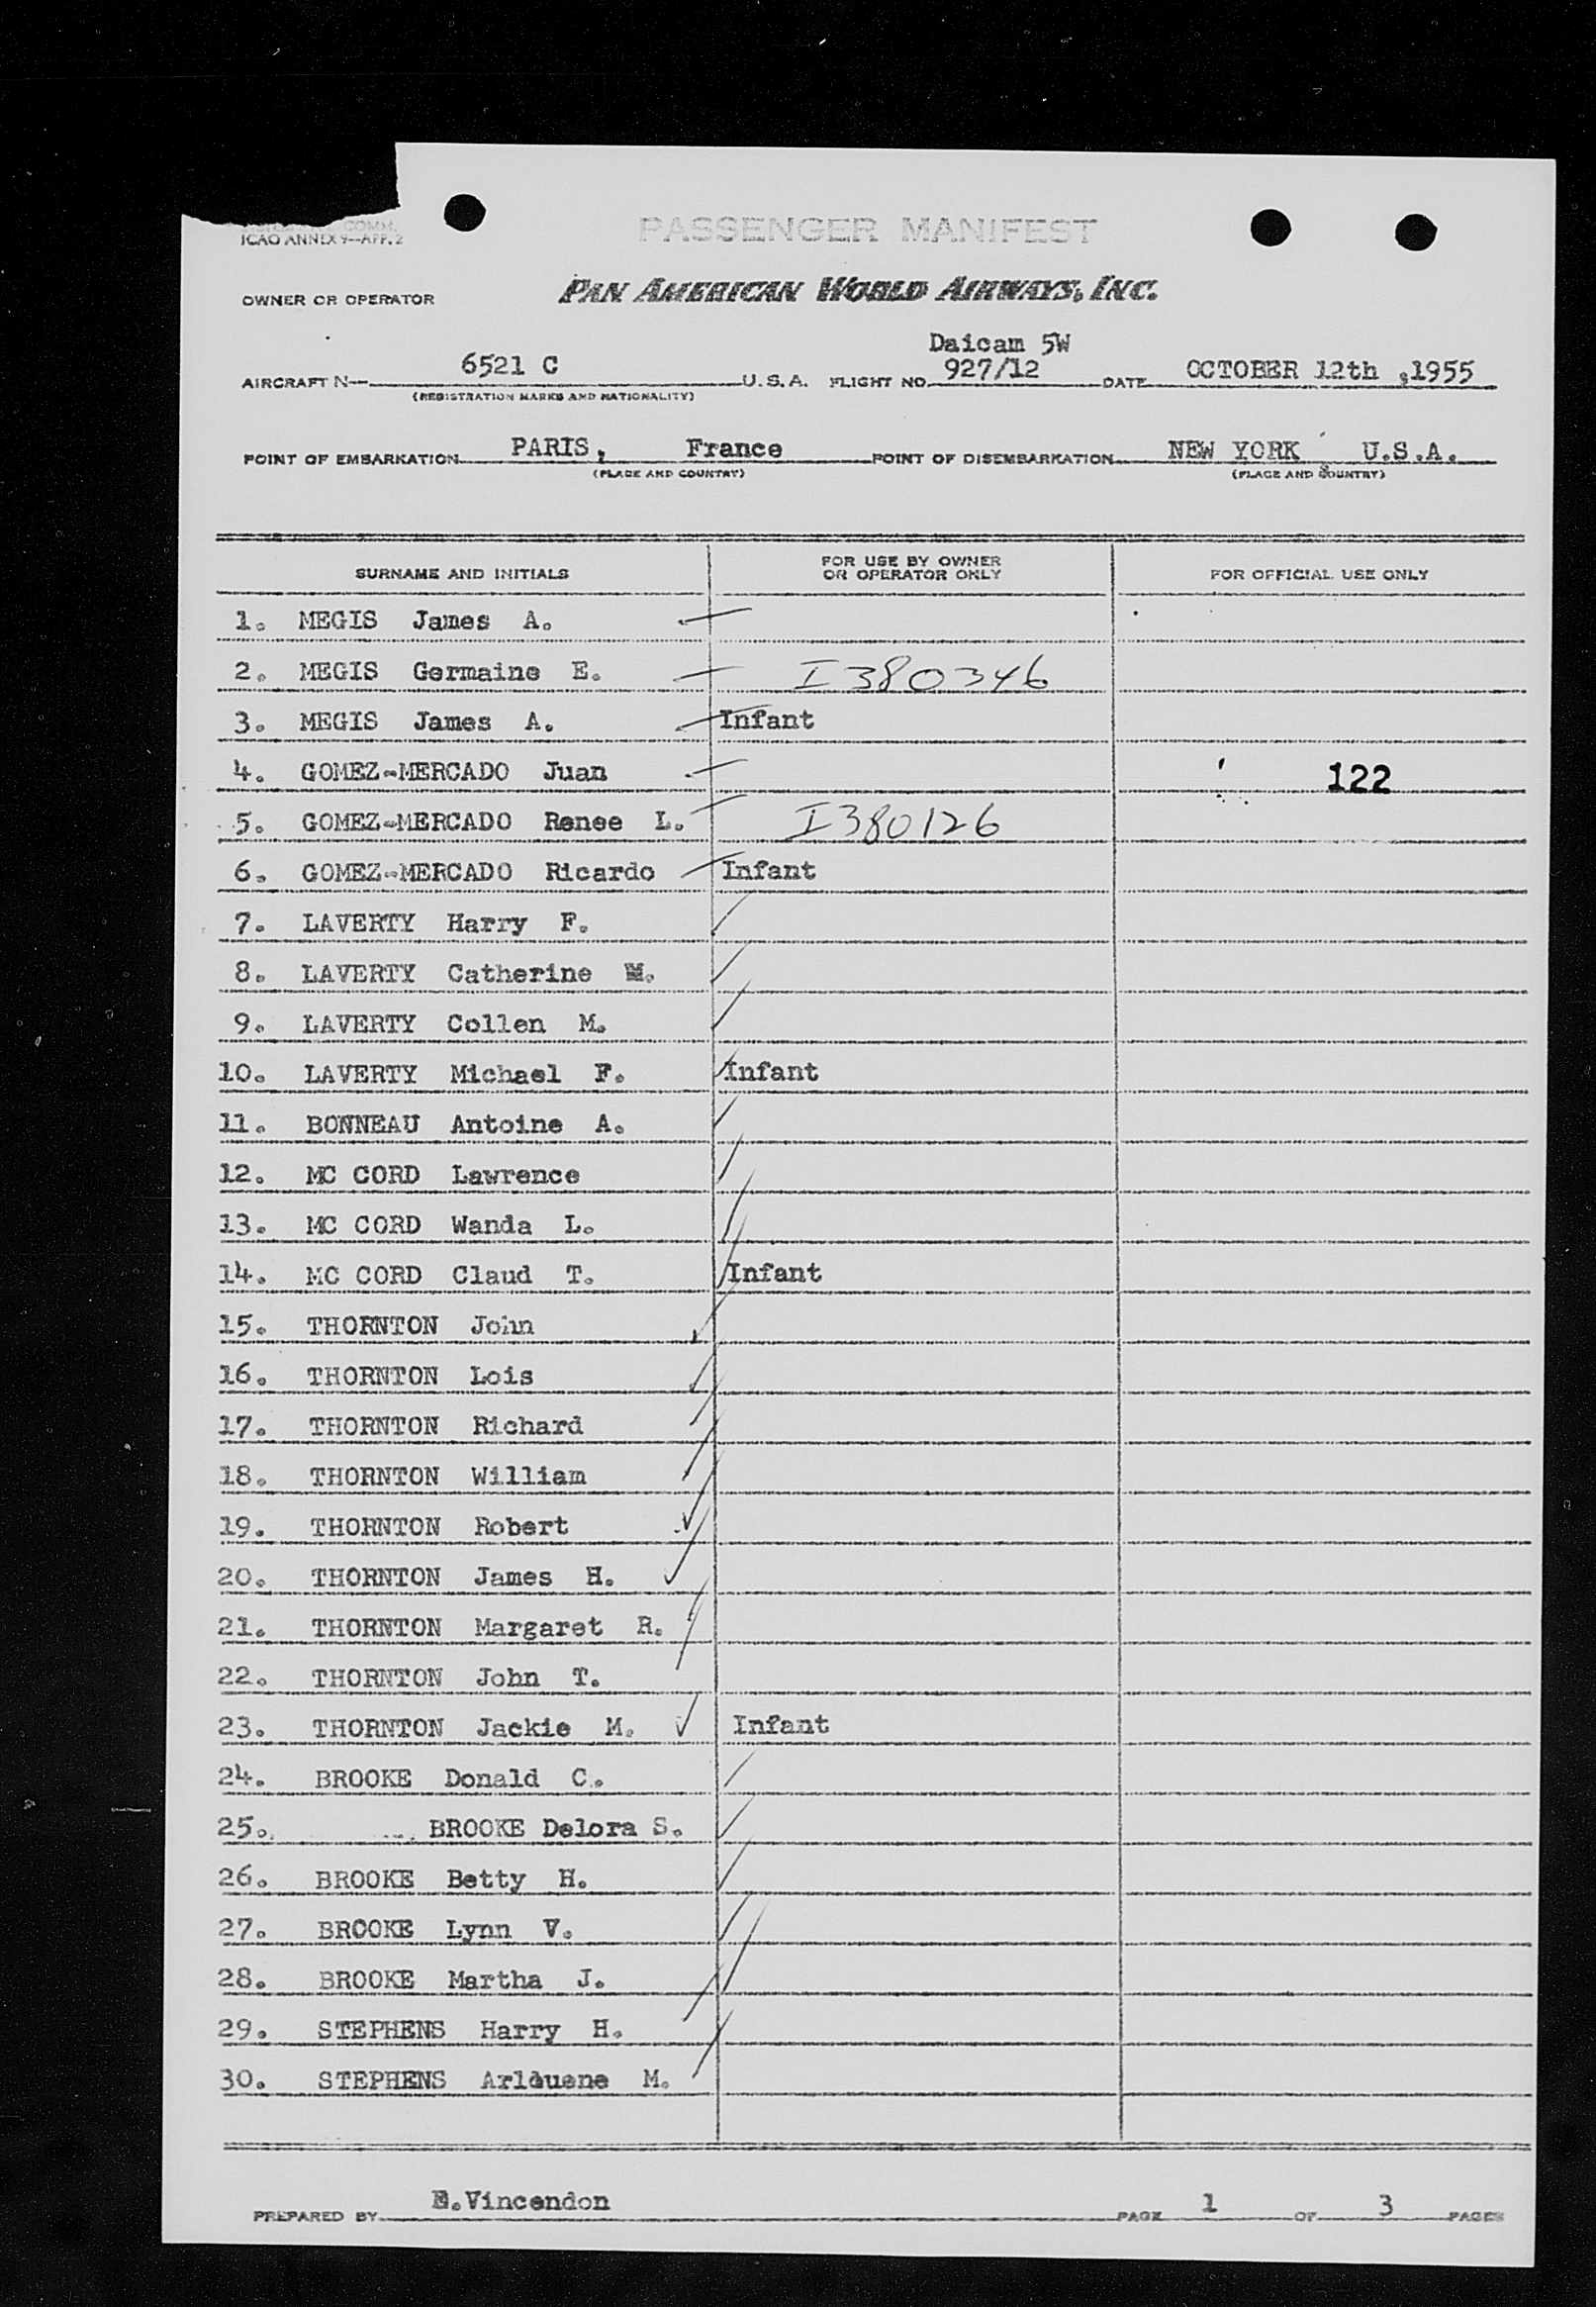 ICAO ANNEX 9—APP. 2
PASSENGER MANIFEST
OWNER OR OPERATOR PAN AMERICAN WORLD AIRWAYS, INC.
Daicam 5W
AIRCRAFT N— 6521 C U.S.A. FLIGHT NO. 927/12 DATE OCTOBER 12th ,1955
(REGISTRATION MARKS AND NATIONALITY)
POINT OF EMBARKATION PARIS, France POINT OF DISEMBARKATION NEW YORK U.S.A.
(PLACE AND COUNTRY) (PLACE AND COUNTRY)
SURNAME AND INITIALS FOR USE BY OWNER OR OPERATOR ONLY FOR OFFICIAL USE ONLY
1. MEGIS James A.
2. MEGIS Germaine E. I380346
3. MEGIS James A. Infant
4. GOMEZ-MERCADO Juan 122
5. GOMEZ-MERCADO Renee L. I380126
6. GOMEZ-MERCADO Ricardo Infant
7. LAVERTY Harry F.
8. LAVERTY Catherine M.
9. LAVERTY Collen M.
10. LAVERTY Michael F. Infant
11. BONNEAU Antoine A.
12. MC CORD Lawrence
13. MC CORD Wanda L.
14. MC CORD Claud T. Infant
15. THORNTON John
16. THORNTON Lois
17. THORNTON Richard
18. THORNTON William
19. THORNTON Robert
20. THORNTON James H.
21. THORNTON Margaret R.
22. THORNTON John T.
23. THORNTON Jackie M. Infant
24. BROOKE Donald C.
25. BROOKE Delora S.
26. BROOKE Betty H.
27. BROOKE Lynn V.
28. BROOKE Martha J.
29. STEPHENS Harry H.
30. STEPHENS M.
PREPARED BY E.Vincendon PAGE 1 OF 3 PAGES